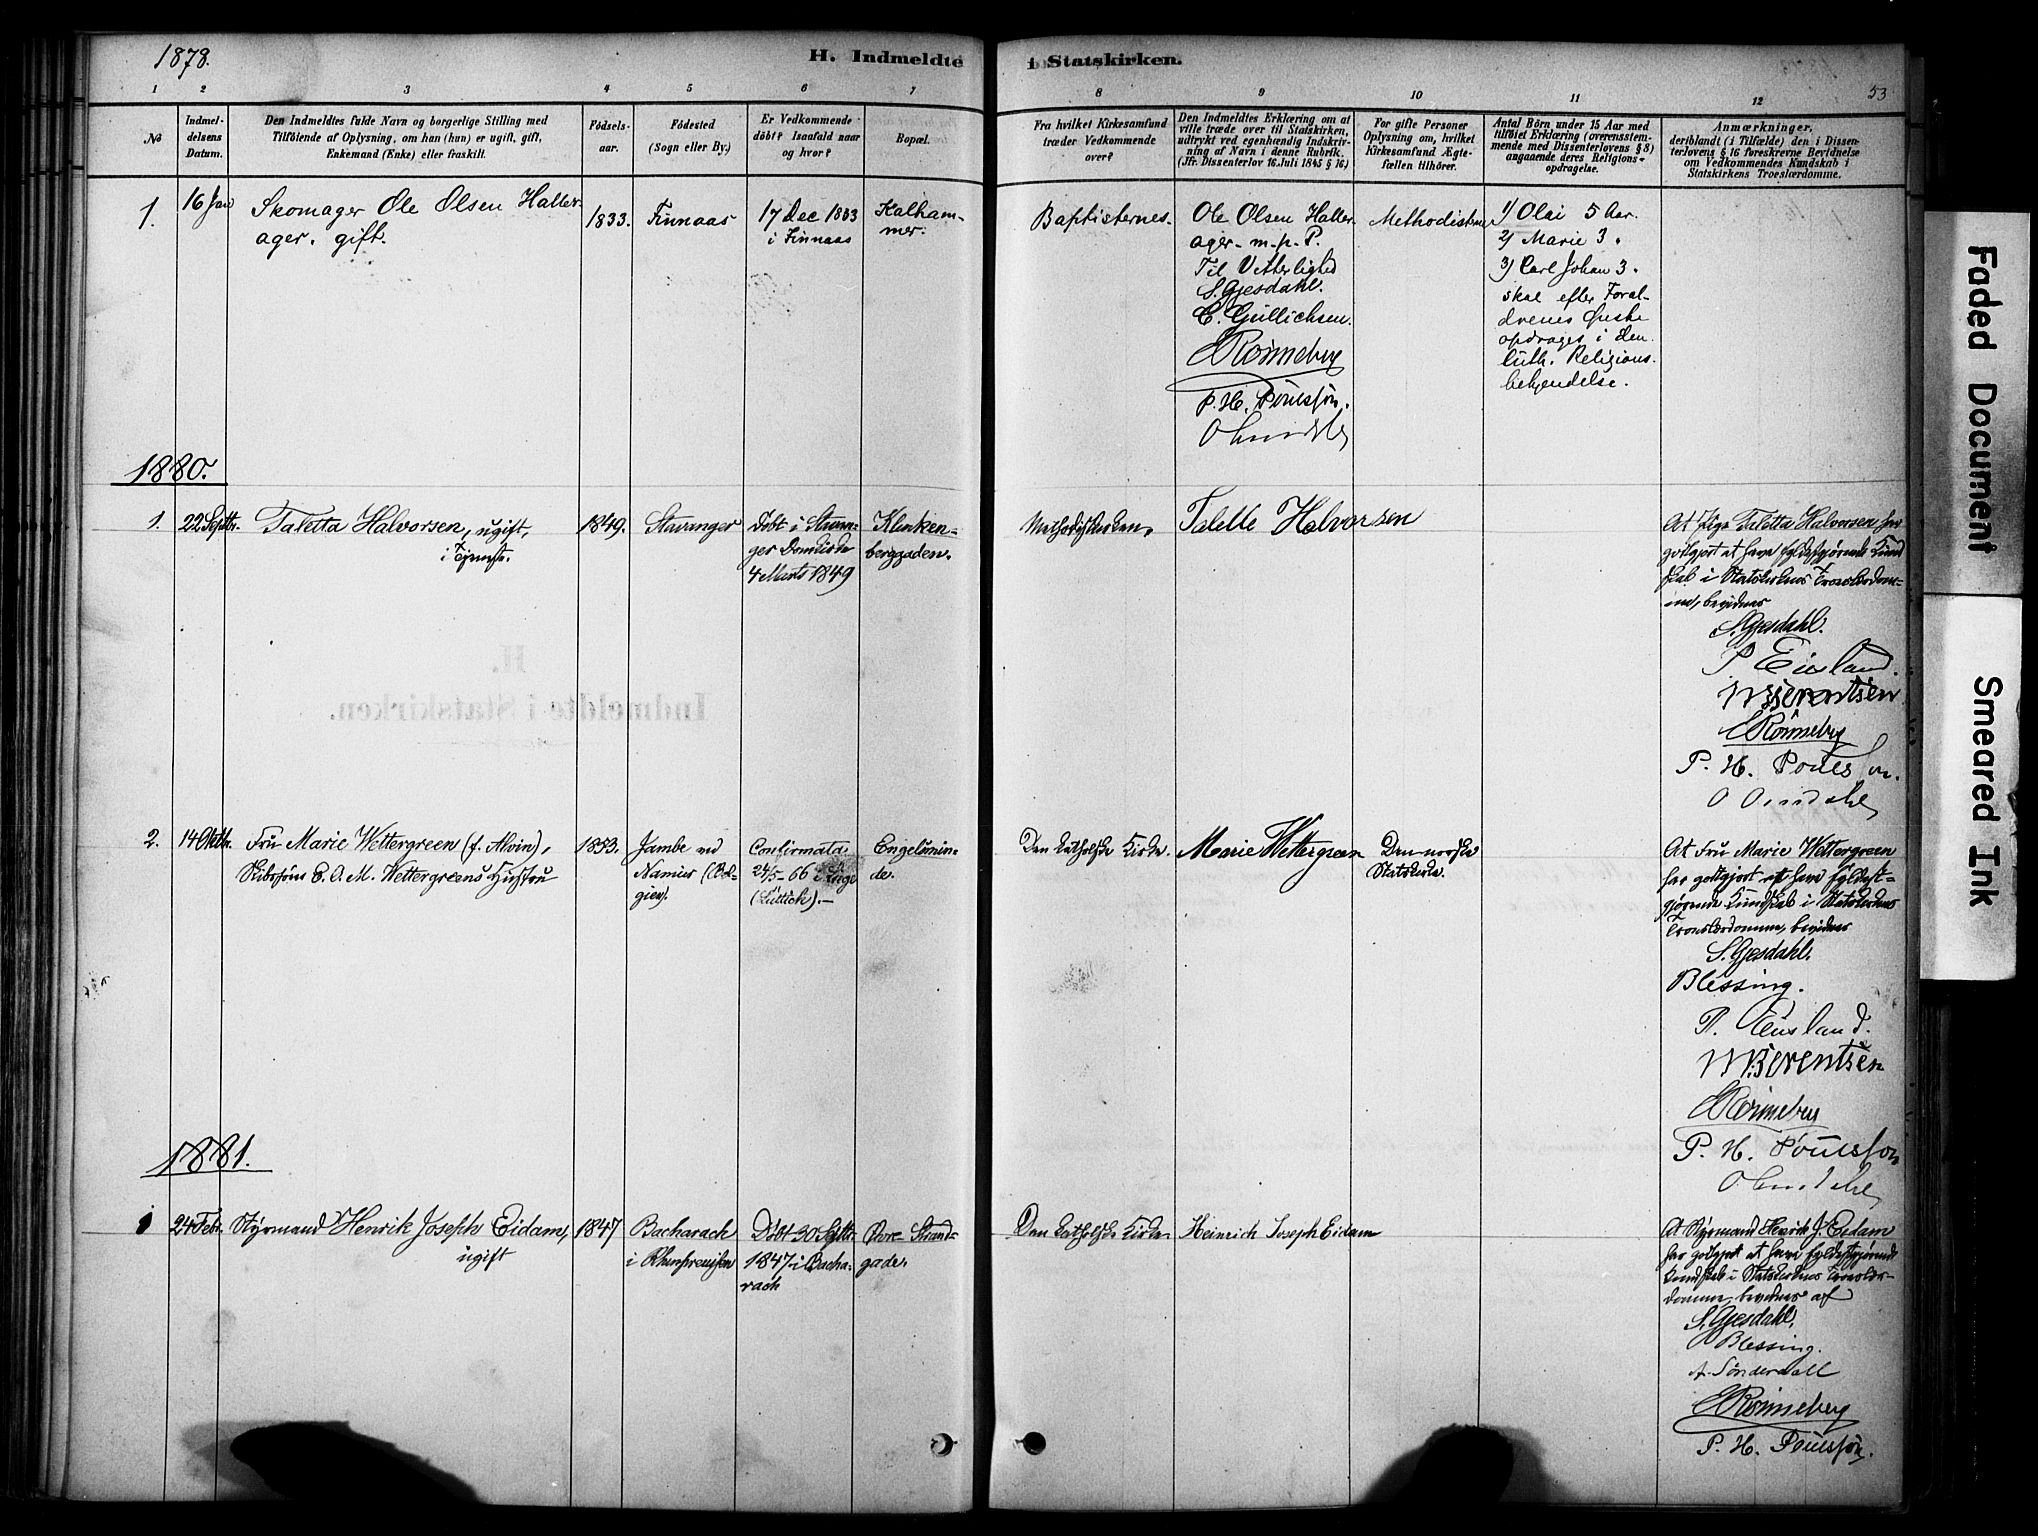 1878.
H. Indmeldte i Statskirken.
53
1 2 3 4 5 6 7 8 9 10 11 12
No
Indmel-
delsens
Datum.
Den Indmeldtes fulde Navn og borgerlige Stilling med
Tilföiende af Oplysning, om han (hun) er ugift, gift,
Enkemand (Enke) eller fraskilt.
Födsels-
aar.
Födested
(Sogn eller By.)
Er Vedkommende
döbt? Isaafald naar
og hvor?
Bopæl.
Fra hvilket Kirkesamfund
træder Vedkommende
over?
Den Indmeldtes Erklæring om at
ville træde over til Statskirken,
udtrykt ved egenhændig Indskriv-
ning af Navn i denne Rubrik.
(Jfr. Dissenterlov 16. Juli 1845 § 16)
For gifte Personer
Oplysning om, hvilket
Kirkesamfund Ægte-
fællen tilhörer.
Antal Börn under 15 Aar med
tilföiet Erklæring (overensstem-
mende med Dissenterlovens § 8)
angaaende deres Religions-
opdragelse.
Anmærkninger,
deriblandt (i Tilfælde) den i Dissen-
terlovens § 16 foreskrevne Bevidnelse
om Vedkommendes Kundskab i
Statskirkens Troeslærdomme.
1.
16 Jan
Skomager Ole Olsen Haller-
ager. gift.
1833.
Finnaas
17 Dec 1833
i Finnaas
Kalham-
mer.
Baptisternes.
Ole Olsen Haller
ager- m. p. P.
Til Vitterlighed
S. Gjesdahl.
C. Gullichsen.
E Rønneberg
P. H. Poulssøn.
Methodisterne
1) Olai 5 Aar.
2) Marie 3 "
3) Carl Johan 3.
skal efter Foræl-
drenes Ønske
opdrages i den
luth. Religions-
bekjendelse.
1880.
1.
22 Septbr.
Taletta Halvorsen, ugift,
i Tjeneste.
1849.
Stavanger
Døbt i Stavan-
ger Domkirke
4 Marts 1849
Klinken-
berggaden.
Methodistkirken,
Talette Halvorsen
At Pige Taletta Halvorsen har
godtgjort at have fyldestgjørende Kund
skab i Statskirkens Troeslærdom-
me, bevidnes
S. Gjesdahl.
Berentsen
E Rønneberg
P. H. Poulssøn.
O Omdahl
H.
Indmeldte i Statskirken.
2.
14 Oktbr.
Fru Marie Wettergreen (f. Alvin),
Skibsfører E. A. M. Wettergreens Hustru
1853.
Jambe ved
Namur (Bel-
gien).
Confirmata
24/5-66 i Liège
(Lüttich).-
Engelsmin-
de.
Den katholske Kirke.
Marie Wettergreen
Den norske
Statskirke.
At Fru Marie Wettergreen
har godtgjort at have fyldest-
gjørende Kundskab i Statskirkens
Troeslærdomme, bevidnes
S. Gjesdahl.
Blessing.
Berentsen
E Rønneberg
P. H. Poulssøn
O Omdahl
1881.
1
24 Febr.
Styrmand Henrik Joseph Eidam,
ugift
1847
Bacharach
i Rhinpreussen
Døbt 30 Septbr.
1847 i Bacha-
rach
Øvre Strand-
gade.
Den katholske Kirke.
Heinrich Joseph Eidam
At Styrmand Henrik J. Eidam
har godtgjort at have fyldestgjørende
Kundskab i Statskirkens Troeslær-
domme, bevidnes af
S. Gjesdahl,
Blessing.
E Rønneberg
P. H. Poulssøn.
Faded Document
Smeared Ink